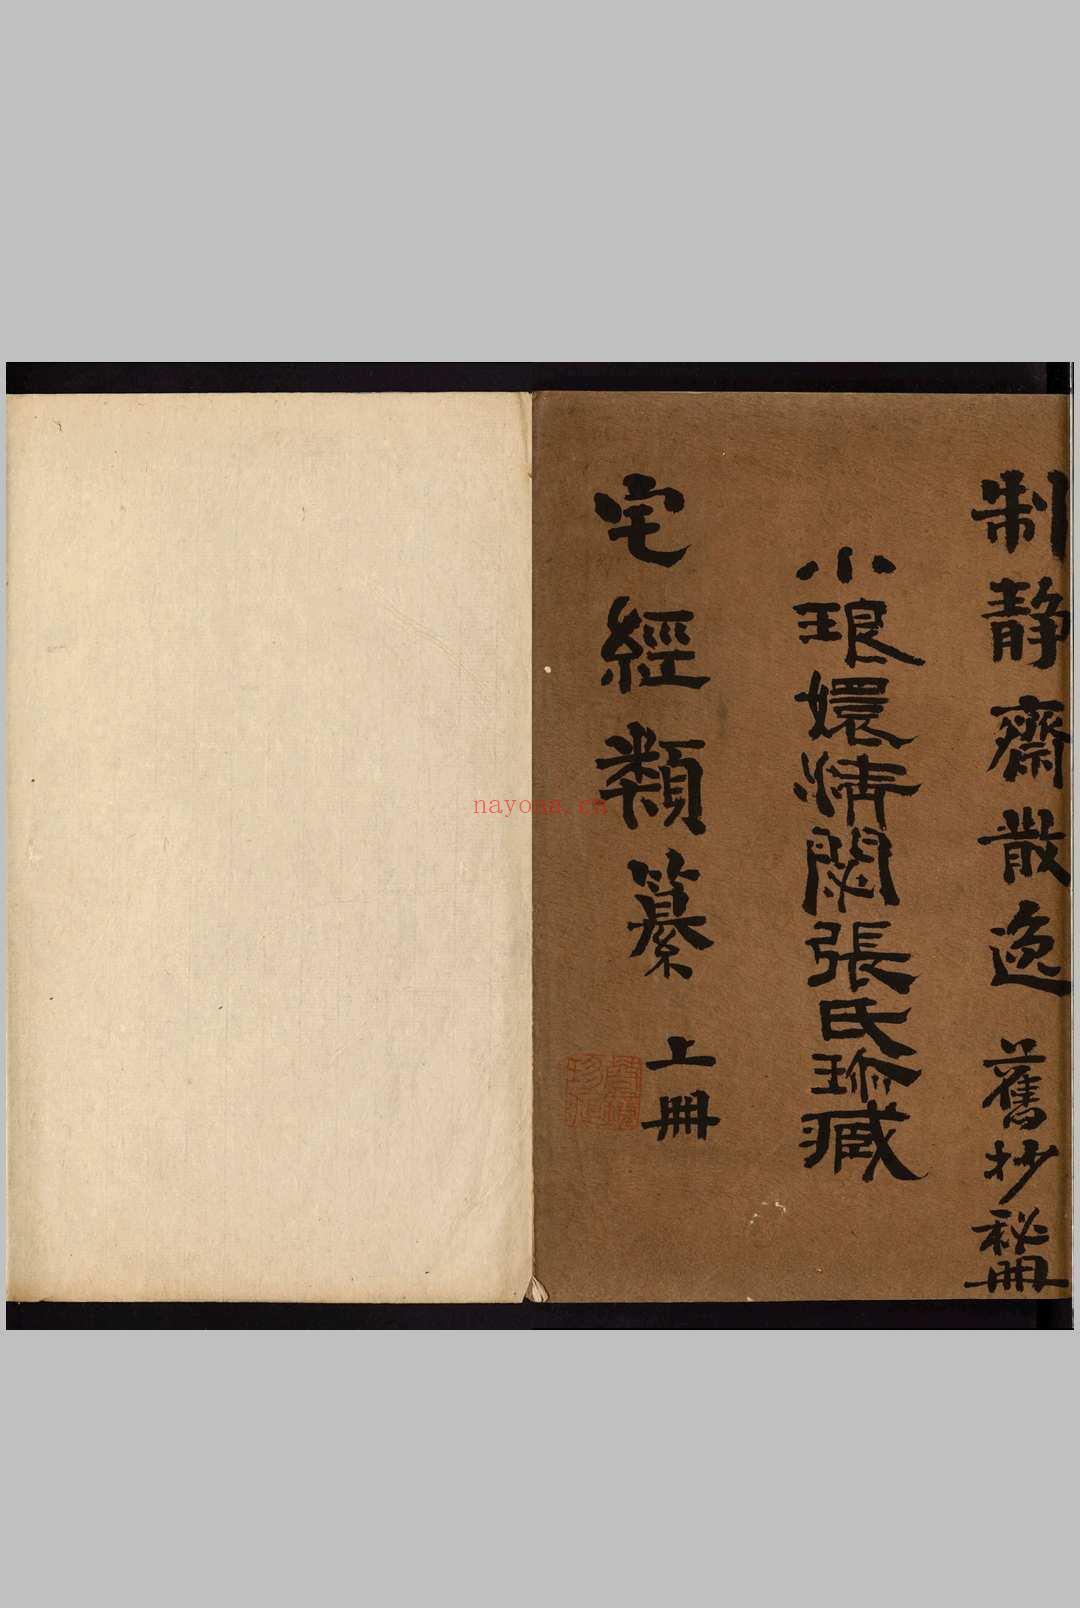 制靜齋散逸 舊抄秘冊
小琅嬛清閟張氏珎藏
宅經類纂 上冊
nayona.cn